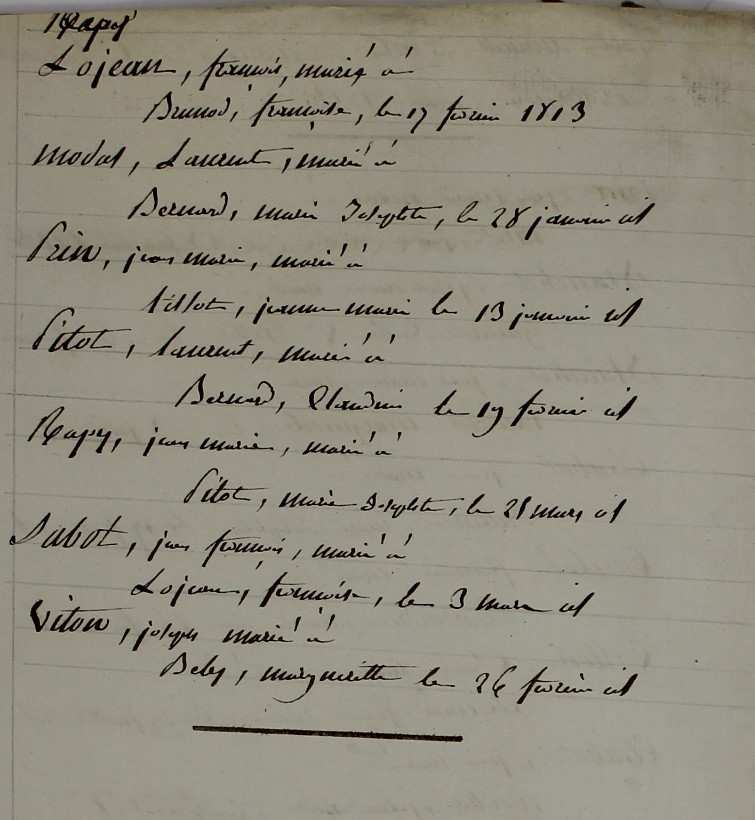 Rapy
Lojean, francois, marié à
Brunod, francoise, le 17 fevrier 1813
modas, Laurent, marié à
Bernard, marie Josephte, le 28 janvier id
Prin, jean marie, marié à
tissot, jeanne marie le 13 janvier id
Pitot, laurent, marié à
Bernard, Claudine le 19 fevrier id
Rapy, jean marie, marié à
Pitot, marie Josephte, le 21 mars id
Sabot, jean francois, marié à
Lojean, francoise, le 3 mars id
Viton, joseph marié à
Beby, margueritte le 26 fevrier id